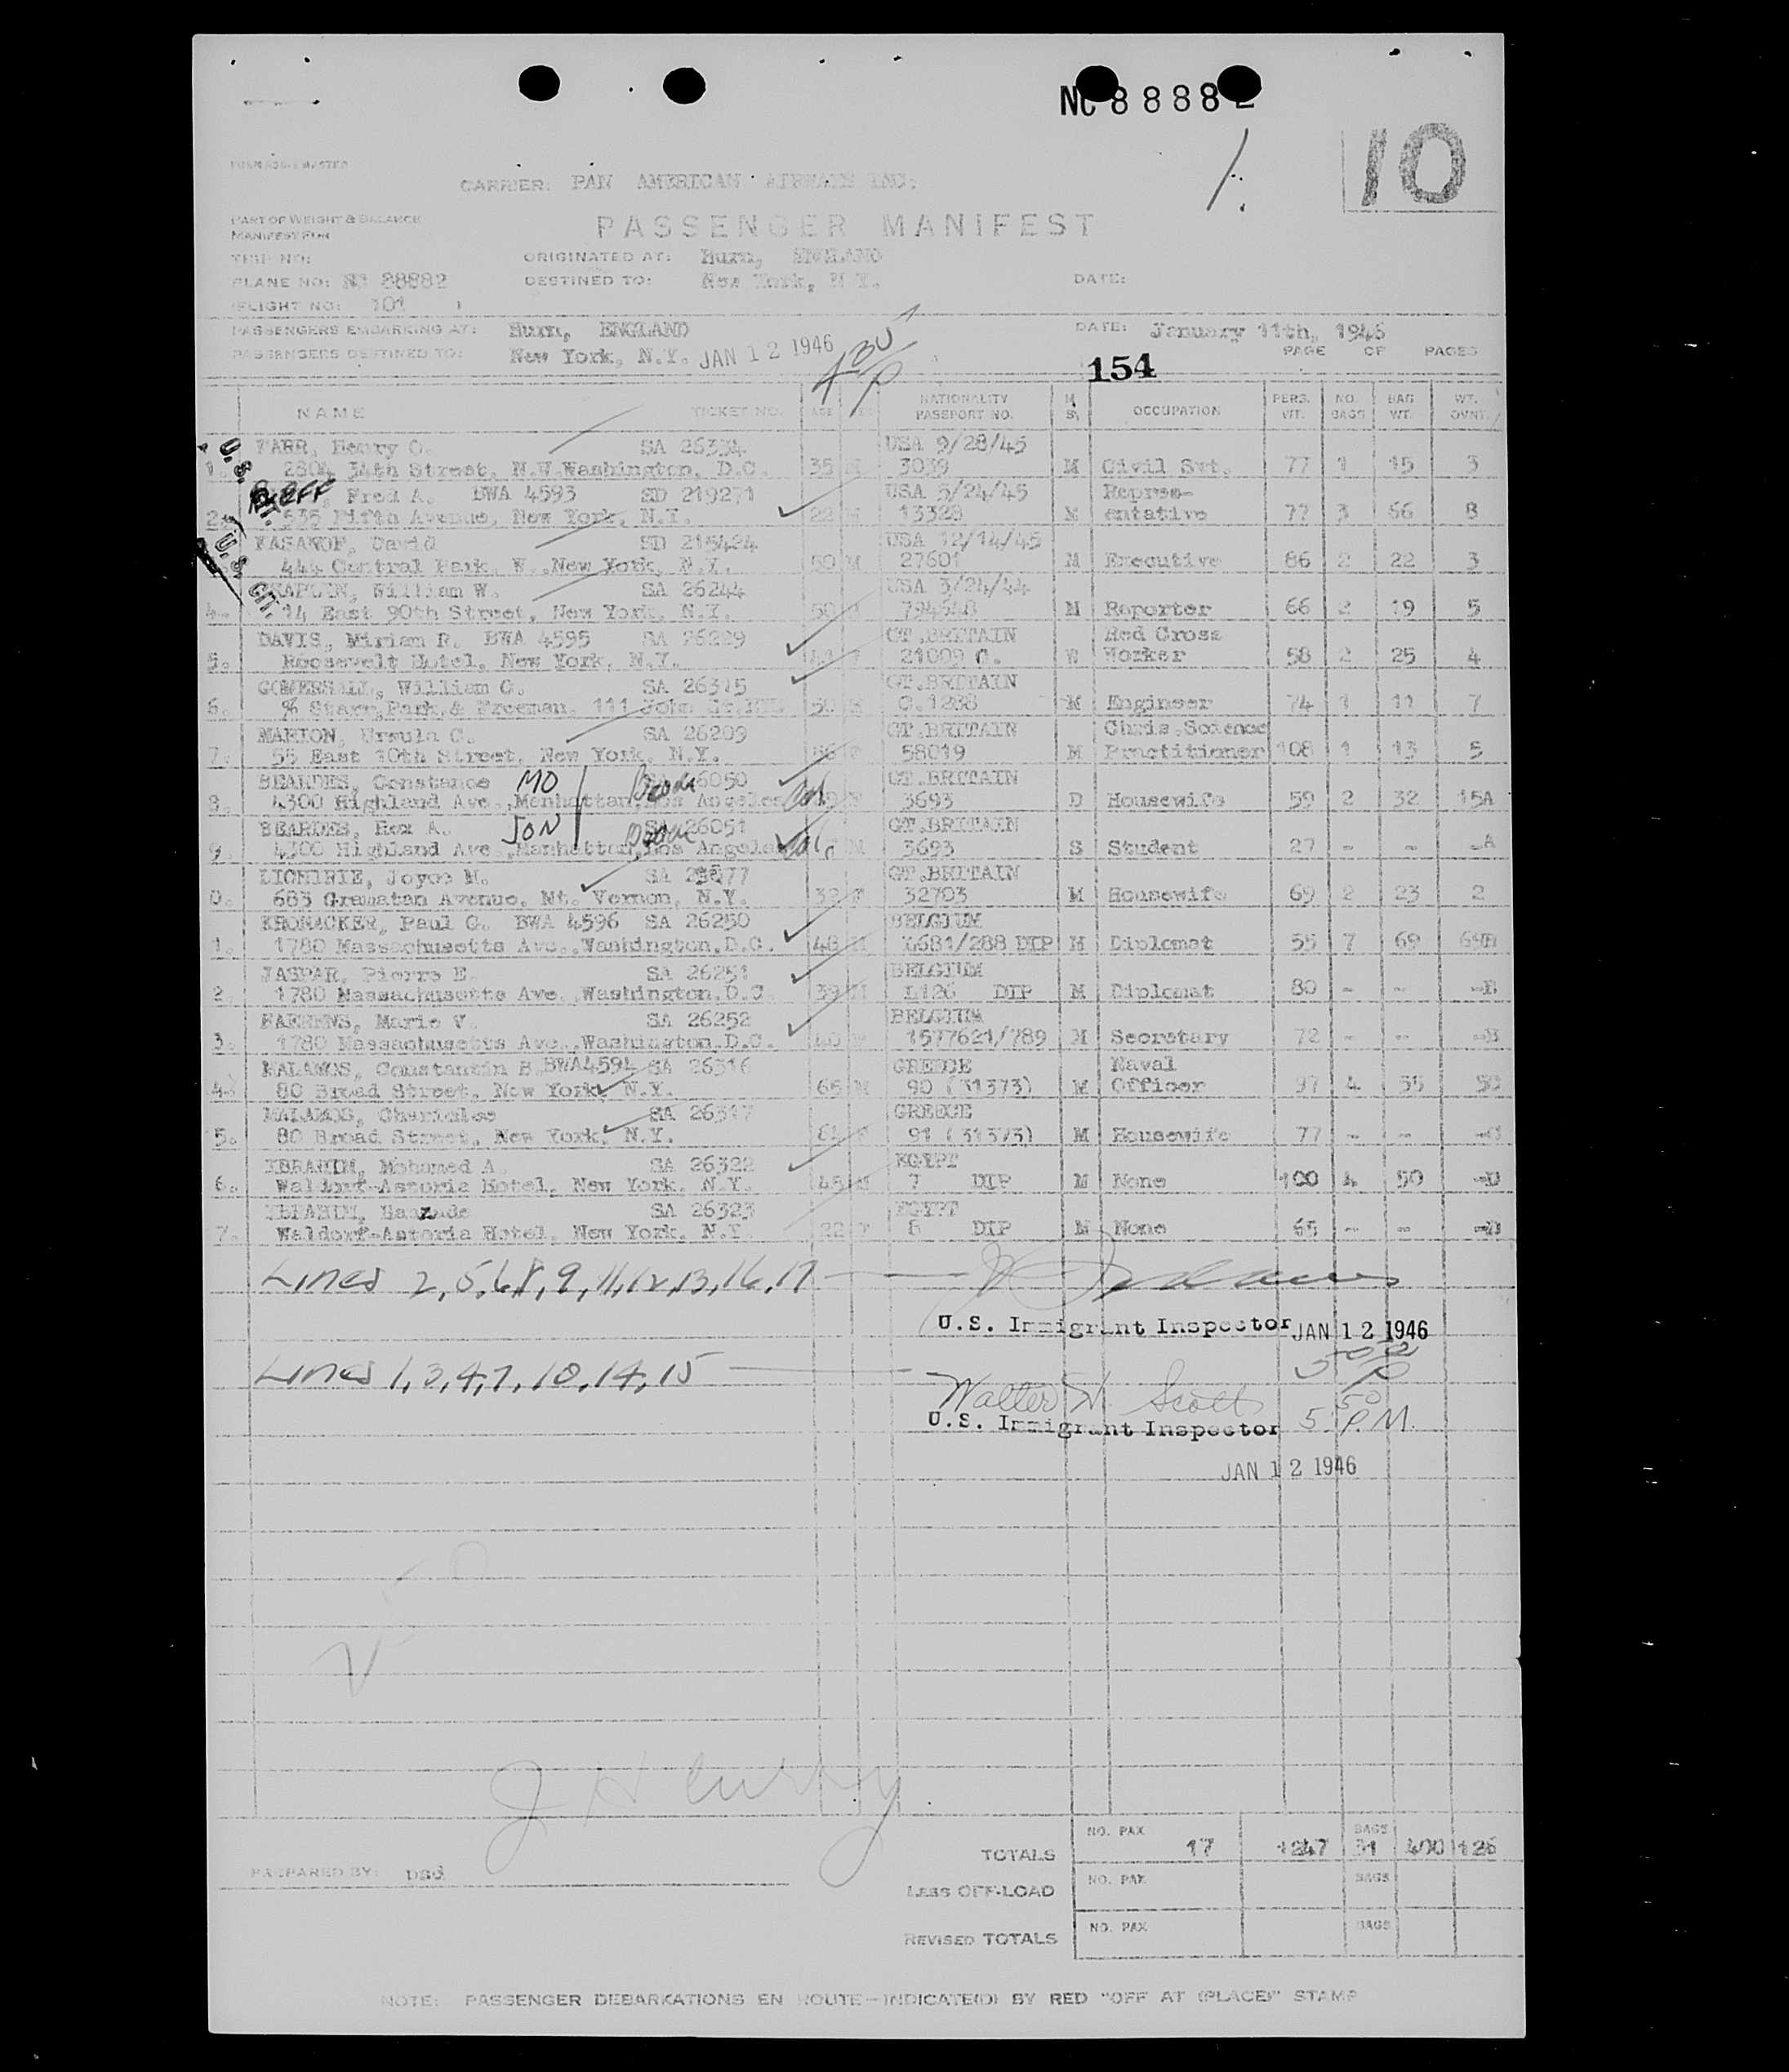 NC 8888
1.
10
CARRIER: PAN AMERICAN AIRWAYS INC.
PART OF WEIGHT & BALANCE
MANIFEST FOR
PASSENGER MANIFEST
TRIP NO:
ORIGINATED AT: Hurn, ENGLAND
PLANE NO: NC 88882
DESTINED TO: New York, N.Y.
DATE:
FLIGHT NO: 101
PASSENGERS EMBARKING AT: Hurn, ENGLAND
DATE: January 11th, 1946
PASSENGERS DESTINED TO: New York, N.Y. JAN 12 1946
PAGE OF PAGES
154
NAME TICKET NO. AGE SEX NATIONALITY PASSPORT NO. M S OCCUPATION PERS. WT. NO. BAGS BAG WT. WT. OVNT.
U.S. CIT.
FARR, Henry O. SA 26334 USA 9/28/45
1. 2804 34th Street, N.W. Washington, D.C. 35 M 3039 M Civil Svt. 77 1 15 3
Fred A. BWA 4593 SD 219271 USA 5/24/45 Repres-
2. 535 Fifth Avenue, New York, N.Y. 22 M 13328 M entative 77 3 66 8
U.S. CIT.
KASANOF, David SD 215424 USA 12/14/45
444 Central Park, W., New York, N.Y. 50 M 27601 M Executive 86 2 22 3
CHAPLIN, William W. SA 26244 USA 3/24/44
4. 14 East 90th Street, New York, N.Y. 50 M M Reporter 66 2 19 5
DAVIS, Miriam R. BWA 4595 SA 26229 GT.BRITAIN Red Cross
5. Roosevelt Hotel, New York, N.Y. F 21009 C. W Worker 58 2 25 4
GOMERSALL, William C. SA 26315 GT.BRITAIN
6. % Starr,Park,& Freeman, 111 John St. 50 M C.1288 M Engineer 74 1 11 7
MARION, Ursula C. SA 26209 GT.BRITAIN Chris.Science
7. 55 East 10th Street, New York, N.Y. 66 F 58019 M Practitioner 108 1 13 5
BEARDES, Constance MO 26050 GT.BRITAIN
8. 4300 Highland Ave.,Manhattan,Los Angeles F 3693 D Housewife 59 2 32 15A
BEARDES, Rex A. SON SA 26051 GT.BRITAIN
9. 4300 Highland Ave.,Manhattan,Los Angeles M 3693 S Student 27 - - -A
DIONIRIE, Joyce M. SA GT.BRITAIN
0. 663 Gramatan Avenue, Mt. Vernon, N.Y. 32 F 32703 M Housewife 69 2 23 2
KRONACKER, Paul G. BWA 4596 SA 26250 BELGIUM
1. 1780 Massachusetts Ave.,Washington,D.C. 48 M 4681/288 DIP M Diplomat 55 7 69
JASPAR, Pierre E. SA 26251 BELGIUM
2. 1780 Massachusetts Ave.,Washington,D.C. 39 M L126 DIP M Diplomat 80 - - -B
Marie V. SA 26252 BELGIUM
3. 1780 Massachusetts Ave.,Washington,D.C. 1577621/789 M Secretary 72 - - -B
MALAMOS, Constantin B. BWA4594 SA 26316 GREECE Naval
4. 80 Broad Street, New York, N.Y. 65 M 90 (31373) M Officer 97 4 55
MALAMOS, Chariclee SA 26317 GREECE
5. 80 Broad Street, New York, N.Y. 61 F 91 (31373) M Housewife 77 - - -C
IBRAHIM, Mohamed A. SA 26322 EGYPT
6. Waldorf-Astoria Hotel, New York, N.Y. 45 M 7 DIP M None 100 4 50 -D
IBRAHIM, Hanzade SA 26323 EGYPT
7. Waldorf-Astoria Hotel, New York, N.Y. 22 F 8 DIP M None 65 - - -D
Lines 2,5,6,8,9,11,12,13,16,17
U.S. Immigrant Inspector JAN 12 1946
Lines 1,3,4,7,10,14,15
Walter W. Scott
U.S. Immigrant Inspector 5 50 P.M.
JAN 12 1946
TOTALS NO. PAX 17 1247 BAGS 31 400 126
PREPARED BY: psd
LESS OFF-LOAD NO. PAX BAGS
REVISED TOTALS NO. PAX BAGS
NOTE: PASSENGER DEBARKATIONS EN ROUTE—INDICATE(D) BY RED "OFF AT (PLACE)" STAMP